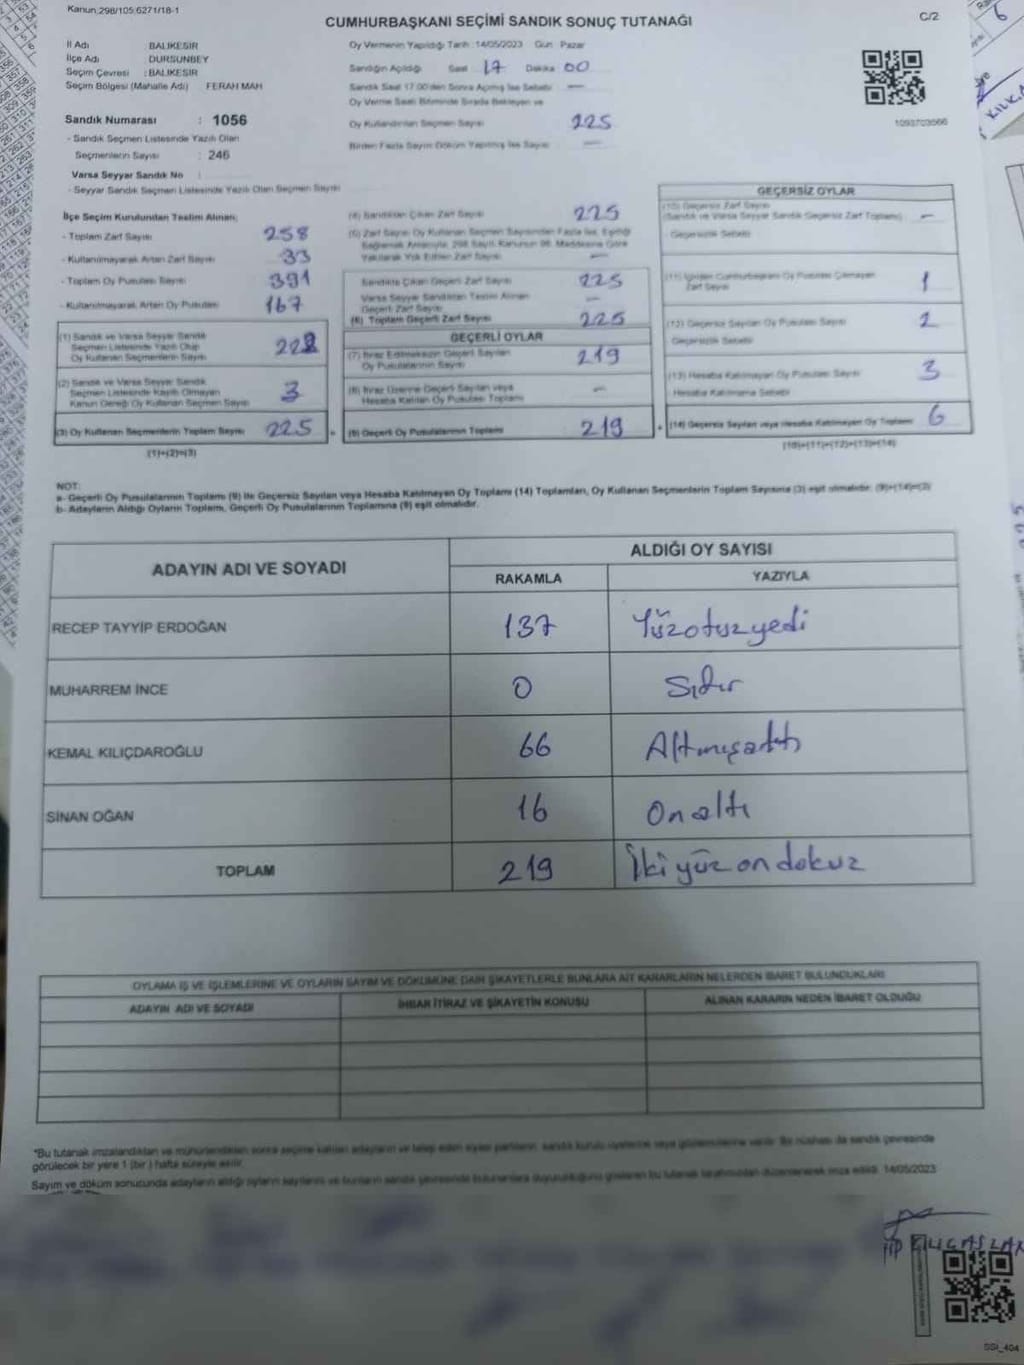 Kanun:298/105;6271/18-1
CUMHURBAŞKANI SEÇİMİ SANDIK SONUÇ TUTANAĞI
C/2
İl Adı BALIKESİR
İlçe Adı DURSUNBEY
Seçim Çevresi : BALIKESİR
Seçim Bölgesi (Mahalle Adı) FERAH MAH
Sandık Numarası : 1056
- Sandık Seçmen Listesinde Yazılı Olan
Seçmenlerin Sayısı : 246
Varsa Seyyar Sandık No :
- Seyyar Sandık Seçmen Listesinde Yazılı Olan Seçmen Sayısı
Oy Vermenin Yapıldığı Tarih : 14/05/2023 Gün Pazar
Sandığın Açıldığı Saat 17 Dakika 00
Sandık Saat 17.00'den Sonra Açılmış İse Sebebi —
Oy Verme Saati Bitiminde Sırada Bekleyen ve
Oy Kullandırılan Seçmen Sayısı 225
Birden Fazla Sayım Döküm Yapılmış İse Sayısı —
1093703566
İlçe Seçim Kurulundan Teslim Alınan:
- Toplam Zarf Sayısı 258
- Kullanılmayarak Artan Zarf Sayısı 33
- Toplam Oy Pusulası Sayısı 391
- Kullanılmayarak Artan Oy Pusulası 167
(1) Sandık ve Varsa Seyyar Sandık
Seçmen Listesinde Yazılı Olup
Oy Kullanan Seçmenlerin Sayısı 222
(2) Sandık ve Varsa Seyyar Sandık
Seçmen Listesinde Kayıtlı Olmayan
Kanun Gereği Oy Kullanan Seçmen Sayısı 3
(3) Oy Kullanan Seçmenlerin Toplam Sayısı 225
(1)+(2)=(3)
(4) Sandıktan Çıkan Zarf Sayısı 225
(5) Zarf Sayısı Oy Kullanan Seçmen Sayısından Fazla İse, Eşitliği
Sağlamak Amacıyla, 298 Sayılı Kanunun 98. Maddesine Göre
Yakılarak Yok Edilen Zarf Sayısı —
Sandıkta Çıkan Geçerli Zarf Sayısı 225
Varsa Seyyar Sandıktan Teslim Alınan
Geçerli Zarf Sayısı —
(6) Toplam Geçerli Zarf Sayısı 225
GEÇERLİ OYLAR
(7) İtiraz Edilmeksizin Geçerli Sayılan
Oy Pusulalarının Sayısı 219
(8) İtiraz Üzerine Geçerli Sayılan veya
Hesaba Katılan Oy Pusulası Toplamı —
(9) Geçerli Oy Pusulalarının Toplamı 219
GEÇERSİZ OYLAR
(10) Geçersiz Zarf Sayısı
(Sandık ve Varsa Seyyar Sandık Geçersiz Zarf Toplamı) —
Geçersizlik Sebebi
(11) İçinden Cumhurbaşkanı Oy Pusulası Çıkmayan
Zarf Sayısı 1
(12) Geçersiz Sayılan Oy Pusulası Sayısı 2
Geçersizlik Sebebi
(13) Hesaba Katılmayan Oy Pusulası Sayısı 3
Hesaba Katılmama Sebebi
(14) Geçersiz Sayılan veya Hesaba Katılmayan Oy Toplamı 6
(10)+(11)+(12)+(13)=(14)
NOT:
a- Geçerli Oy Pusulalarının Toplamı (9) ile Geçersiz Sayılan veya Hesaba Katılmayan Oy Toplamı (14) Toplamları, Oy Kullanan Seçmenlerin Toplam Sayısına (3) eşit olmalıdır. (9)+(14)=(3)
b- Adayların Aldığı Oyların Toplamı, Geçerli Oy Pusulalarının Toplamına (9) eşit olmalıdır.
ADAYIN ADI VE SOYADI
ALDIĞI OY SAYISI
RAKAMLA YAZIYLA
RECEP TAYYİP ERDOĞAN 137 Yüzotuzyedi
MUHARREM İNCE 0 Sıfır
KEMAL KILIÇDAROĞLU 66 Altmışaltı
SİNAN OĞAN 16 Onaltı
TOPLAM 219 İkiyüzondokuz
OYLAMA İŞ VE İŞLEMLERİNE VE OYLARIN SAYIM VE DÖKÜMÜNE DAİR ŞİKAYETLERLE BUNLARA AİT KARARLARIN NELERDEN İBARET BULUNDUKLARI
ADAYIN ADI VE SOYADI İHBAR İTİRAZ VE ŞİKAYETİN KONUSU ALINAN KARARIN NEDEN İBARET OLDUĞU
*Bu tutanak imzalandıktan ve mühürlendikten sonra seçime katılan adayların ve talep eden siyasi partilerin, sandık kurulu üyelerine veya gözlemcilerine verilir. Bir nüshası da sandık çevresinde
görülecek bir yere 1 (bir) hafta süreyle asılır.
Sayım ve döküm sonucunda adayların aldığı oyların sayılarını ve bunların sandık çevresinde bulunanlara duyurulduğunu gösteren bu tutanak tarafımızdan düzenlenerek imza edildi. 14/05/2023
SSI_404